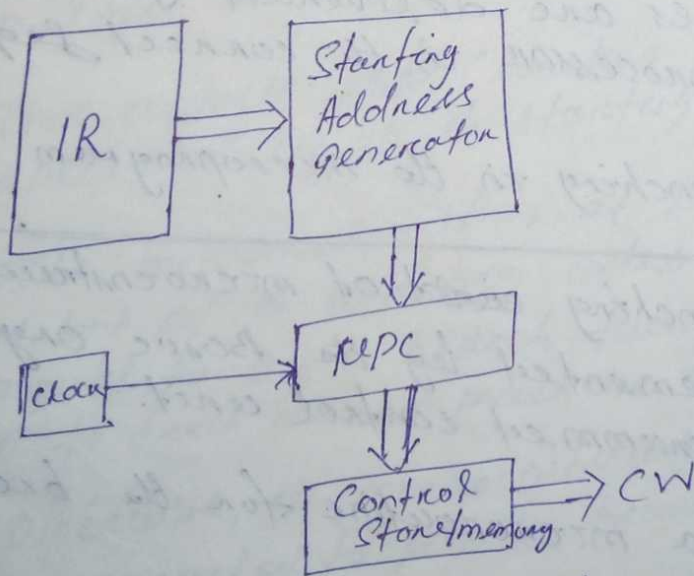 IR
Starting
Address
Generator
μPC
Clock
Control
Store/memory
CW